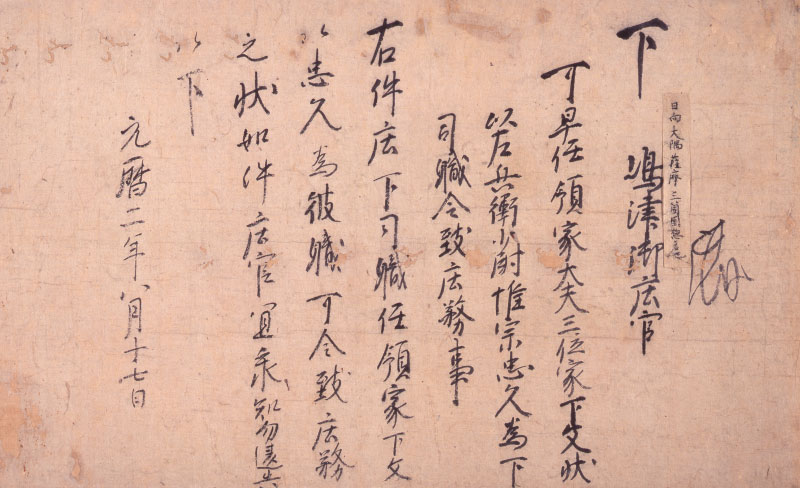 下 嶋津御庄官
日向 大隅 薩摩 三箇国
可早任領家大夫三位家下文状
以左兵衛少尉惟宗忠久為下
司職令致庄務事
右件庄下司職任領家下文
以忠久為彼職可令致庄務
之状如件庄官宜承知勿違失
以下
元暦二年八月十七日